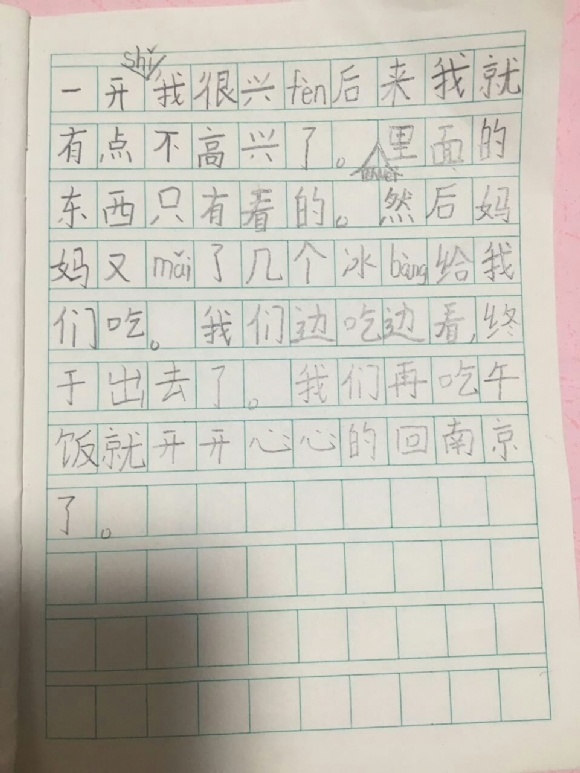 shǐ
一开我很兴fèn后来我就
有点不高兴了。里面的
东西只有看的。然后妈
妈又mǎi了几个冰bàng给我
们吃。我们边吃边看,终
于出去了。我们再吃午
饭就开开心心的回南京
了。